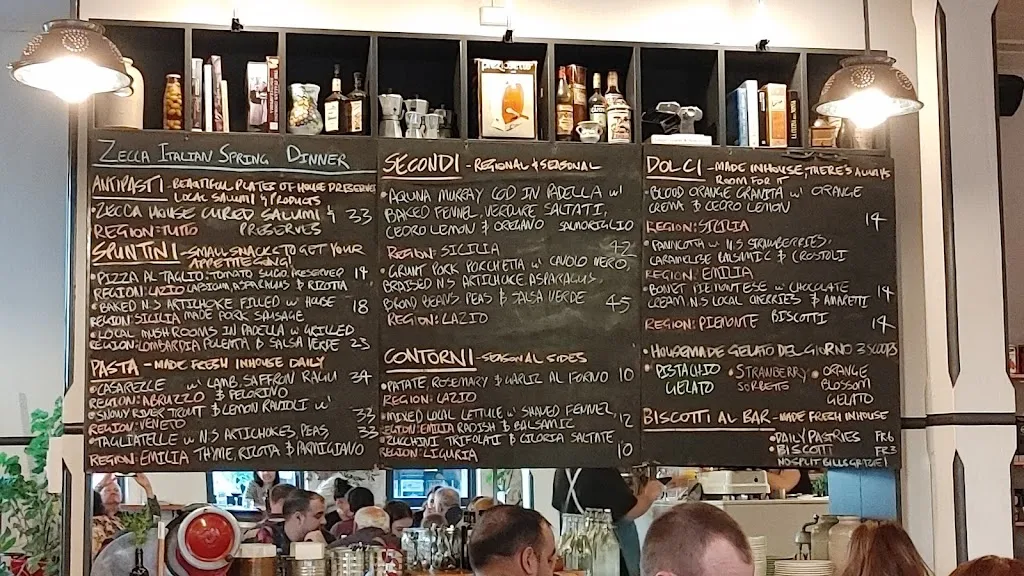 ZECCA ITALIAN SPRING DINNER
ANTIPASTI - BEAUTIFUL PLATES OF HOUSE PRESERVES
LOCAL SALUMI & PRODUCTS
• ZECCA HOUSE CURED SALUMI & 33
REGION: TUTTO PRESERVES
SPUNTINI - SMALL SNACKS TO GET YOUR
APPETITE GOING!
• PIZZA AL TAGLIO TOMATO SUGO PRESERVED 19
REGION: LAZIO CAPSICUM ASPARAGUS & RICOTTA
• BAKED N.S ARTICHOKE FILLED W/ HOUSE 18
REGION: SICILIA MADE PORK SAUSAGE
• LOCAL MUSHROOMS IN PADELLA W/ GRILLED
REGION: LOMBARDIA POLENTA & SALSA VERDE 23
PASTA - MADE FRESH INHOUSE DAILY
• CASARECCE W/ LAMB, SAFFRON RAGU 34
REGION: ABRUZZO & PECORINO
• SNOWY RIVER TROUT & LEMON RAVIOLI W/ 33
REGION: VENETO
• TAGLIATELLE W/ N.S ARTICHOKES, PEAS, 33
REGION: EMILIA THYME, RICOTTA & PARMIGIANO
SECONDI - REGIONAL & SEASONAL
• AQUNA MURRAY COD IN PADELLA W/
BAKED FENNEL, VERDURE SALTATI,
CEDRO LEMON & OREGANO SALMORIGLIO
REGION: SICILIA 42
• GRUNT PORK PORCHETTA W/ CAVOLO NERO,
BRAISED N.S ARTICHOKE ASPARAGUS,
BROAD BEANS PEAS & SALSA VERDE 45
REGION: LAZIO
CONTORNI - SEASONAL SIDES
• PATATE, ROSEMARY & GARLIC AL FORNO 10
REGION: LAZIO
• MIXED LOCAL LETTUCE W/ SHAVED FENNEL, 12
REGION: EMILIA RADISH & BALSAMIC
• ZUCCHINI TRIFOLATI & CICORIA SALTATE 10
REGION: LIGURIA
DOLCI - MADE INHOUSE, THERE'S ALWAYS
ROOM FOR IT
• BLOOD ORANGE GRANITA W/ ORANGE
CREMA & CEDRO LEMON 14
REGION: SICILIA
• PANNCOTTA W/ N.S STRAWBERRIES,
CARAMELISE BALSAMIC & CROSTOLI
REGION: EMILIA 14
• BONET PIEMONTESE W/ CHOCOLATE
CREAM N.S LOCAL CHERRIES & AMARETTI
REGION: PIEMONTE BISCOTTI 14
• HOUSEMADE GELATO DEL GIORNO 3 SCOOPS
• PISTACHIO GELATO • STRAWBERRY SORBETS • ORANGE BLOSSOM GELATO
BISCOTTI AL BAR - MADE FRESH INHOUSE
• DAILY PASTRIES FR 6
• BISCOTTI FR 3
NO SPLIT BILLS GRAZIE!